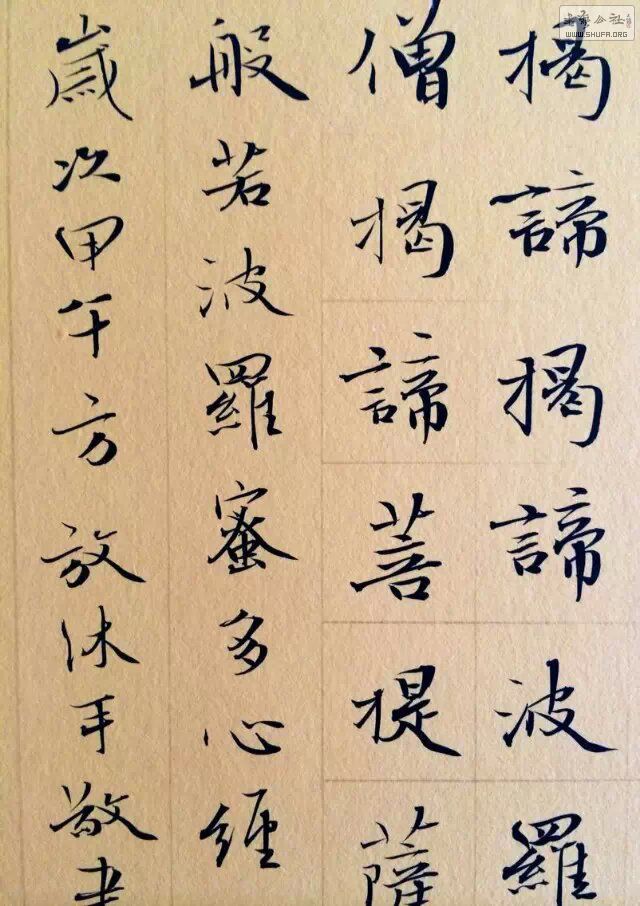 揭諦揭諦波羅
僧揭諦菩提薩
般若波羅蜜多心經
歲次甲午方放沐手敬書
WWW.SHUFA.ORG